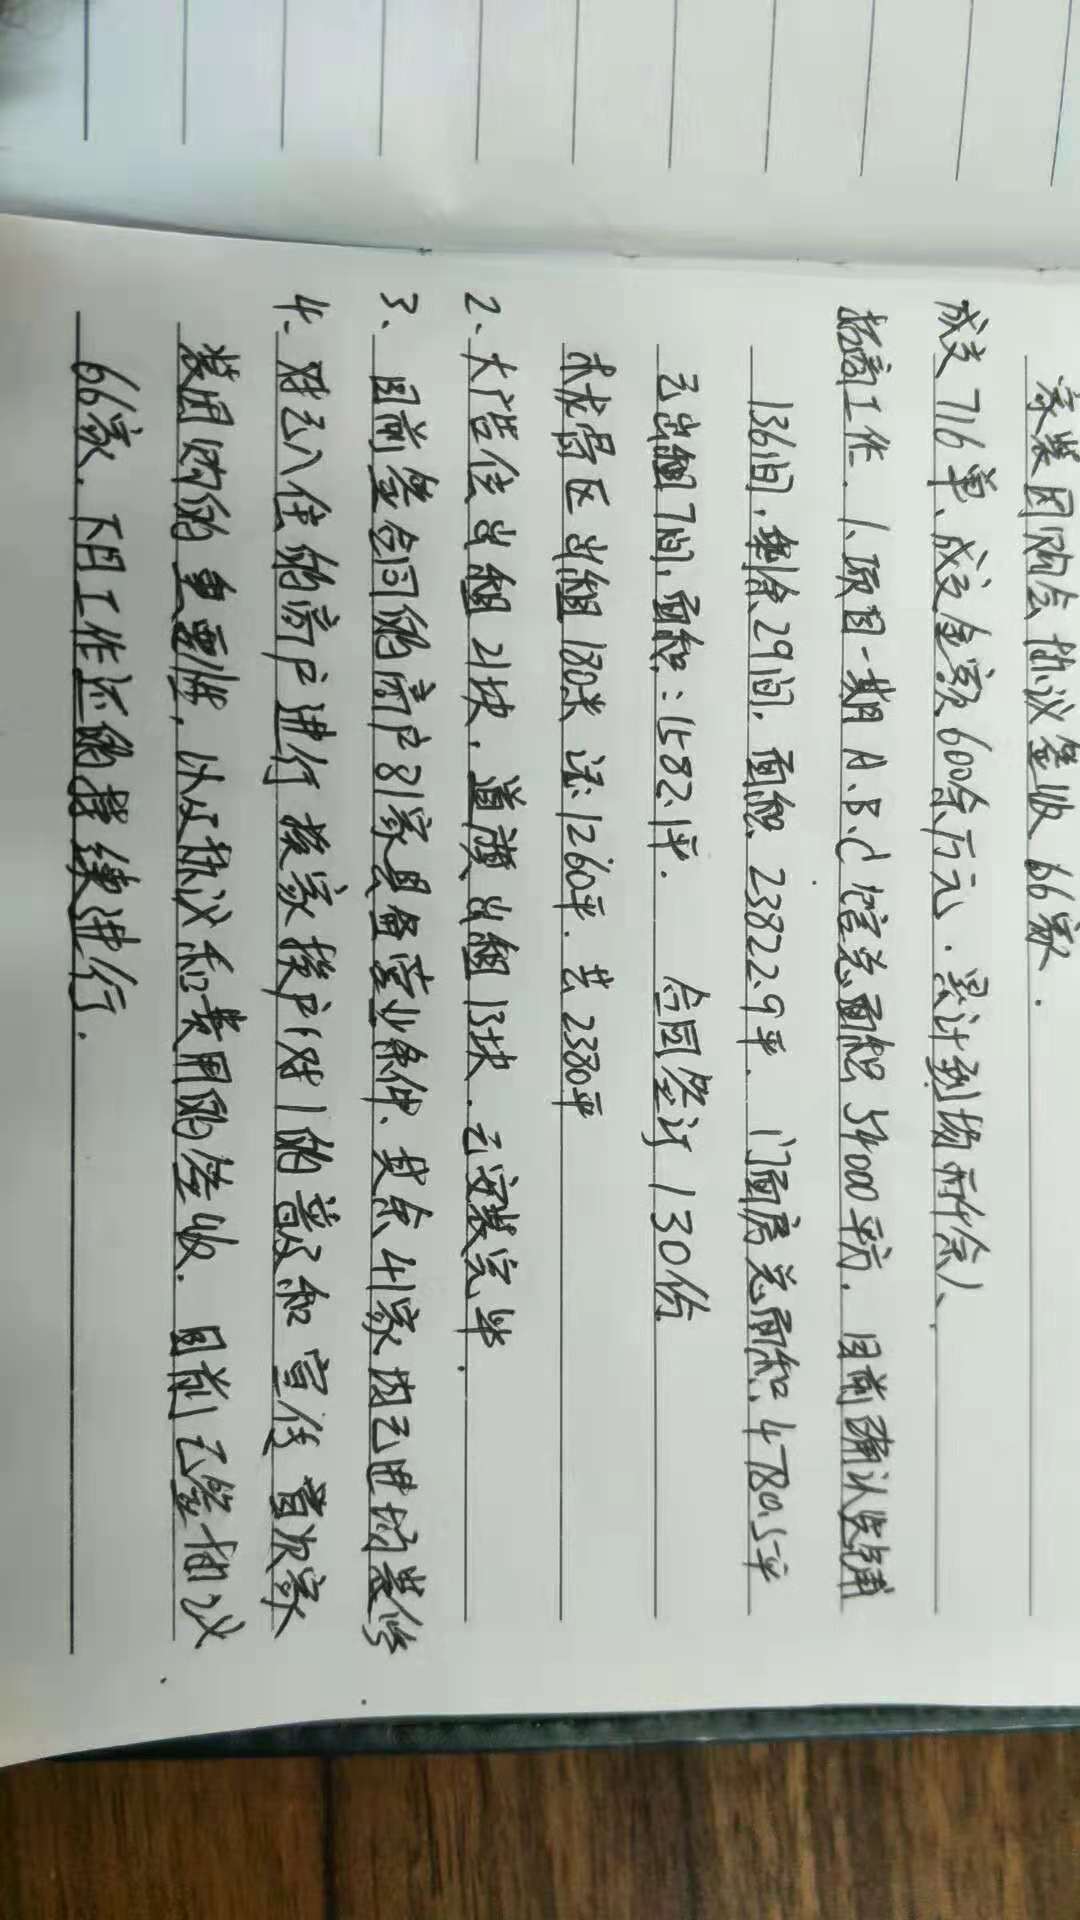 家装团购会协议签收66家.
成交716单、成交金额600余万元.累计到场 余人、
招商工作.1、项目一期A.B.C馆总面积54000平方.目前确认失铺
136间.剩余29间.面积23822.9平、门面房总面积.4780.5平
已出租7间,面积:1582.1平. 合同签订130份
木龙骨区出租180米 活:1260平.共2380平
2、大广告位出租21块.道旗出租13块.已安装完毕.
3、目前签合同的商户81家具备营业条件、其余41家因已进场装修
4、对已入住的商户进行挨家挨户1对1的普及和宣传首次家
装团购的重要性,以及协议和费用的签收.目前已签协议
66家.下月工作还能持续进行.